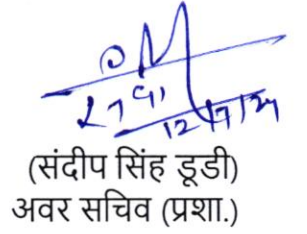 12/7/24
(संदीप सिंह डूडी)
अवर सचिव (प्रशा.)